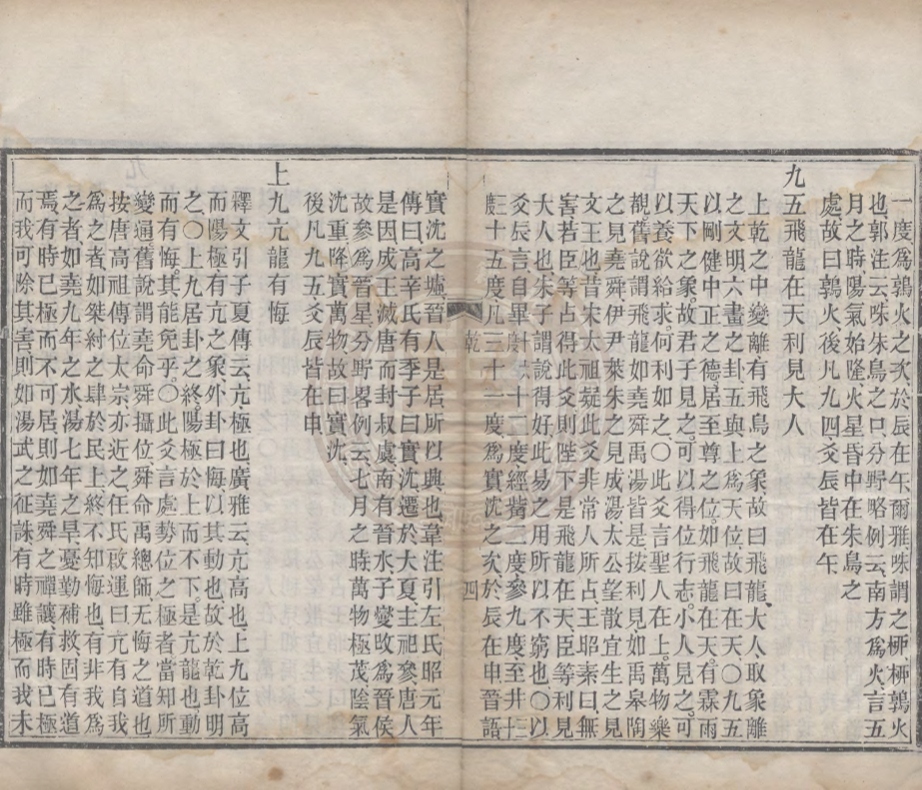 一度爲鶉火之次於辰在午爾雅咮謂之柳柳鶉火
也郭注云咮朱鳥之口分野略例云南方爲火言五
月之時陽氣始隆火星昏中在朱鳥之
處故曰鶉火後凡九四爻辰皆在午
九五飛龍在天利見大人
上乾之中變離有飛鳥之象故曰飛龍大人取象離
之文明六畫之卦五與上爲天位故曰在天〇九五
以剛健中正之德居至尊之位如飛龍在天有霖雨
天下之象故君子見之可以得位行志小人見之可
以養欲給求何利如之〇此爻言聖人在上萬物樂
覩舊說謂飛龍如堯舜禹湯皆是按利見如禹皋陶
之見堯舜伊尹萊朱之見成湯太公望散宜生之見
文王也昔宋太祖筮此爻非常人所占王昭素曰無
害若臣等占得此爻則陛下是飛龍在天臣等利見
大人也朱子謂說得好此易之用所以不窮也〇以
爻辰言自畢十二度經觜二度參九度至井十
度三十五度凡三十一度爲實沈之次於辰在申晉語
乾
四
實沈之墟晉人是居所以興也韋注引左氏昭元年
傳曰高辛氏有季子曰實沈遷於大夏主祀參唐人
是因成王滅唐而封叔虞南有晉水子燮改爲晉侯
故參爲晉星分野畧例云七月之時萬物極茂陰氣
沈重降實萬物故曰實沈
後凡九五爻辰皆在申
上九亢龍有悔
釋文引子夏傳云亢極也廣雅云亢高也上九位高
而陽極有亢之象外卦曰悔以其動也故於乾卦明
之〇上九居卦之終陽極於上而不下是亢龍也動
而有悔其能免乎〇此爻言處勢位之極者當知所
變通舊說謂堯命舜攝位舜命禹總師无悔之道也
按唐高祖傳位太宗亦近之任氏啟運曰亢有自我
爲之者如桀紂之肆於民上終不知悔也有非我爲
之者如堯九年之水湯七年之旱憂勤補救固有道
焉有時已極而不可居則如堯舜之禪讓有時已極
而我可除其害則如湯武之征誅有時雖極而我未